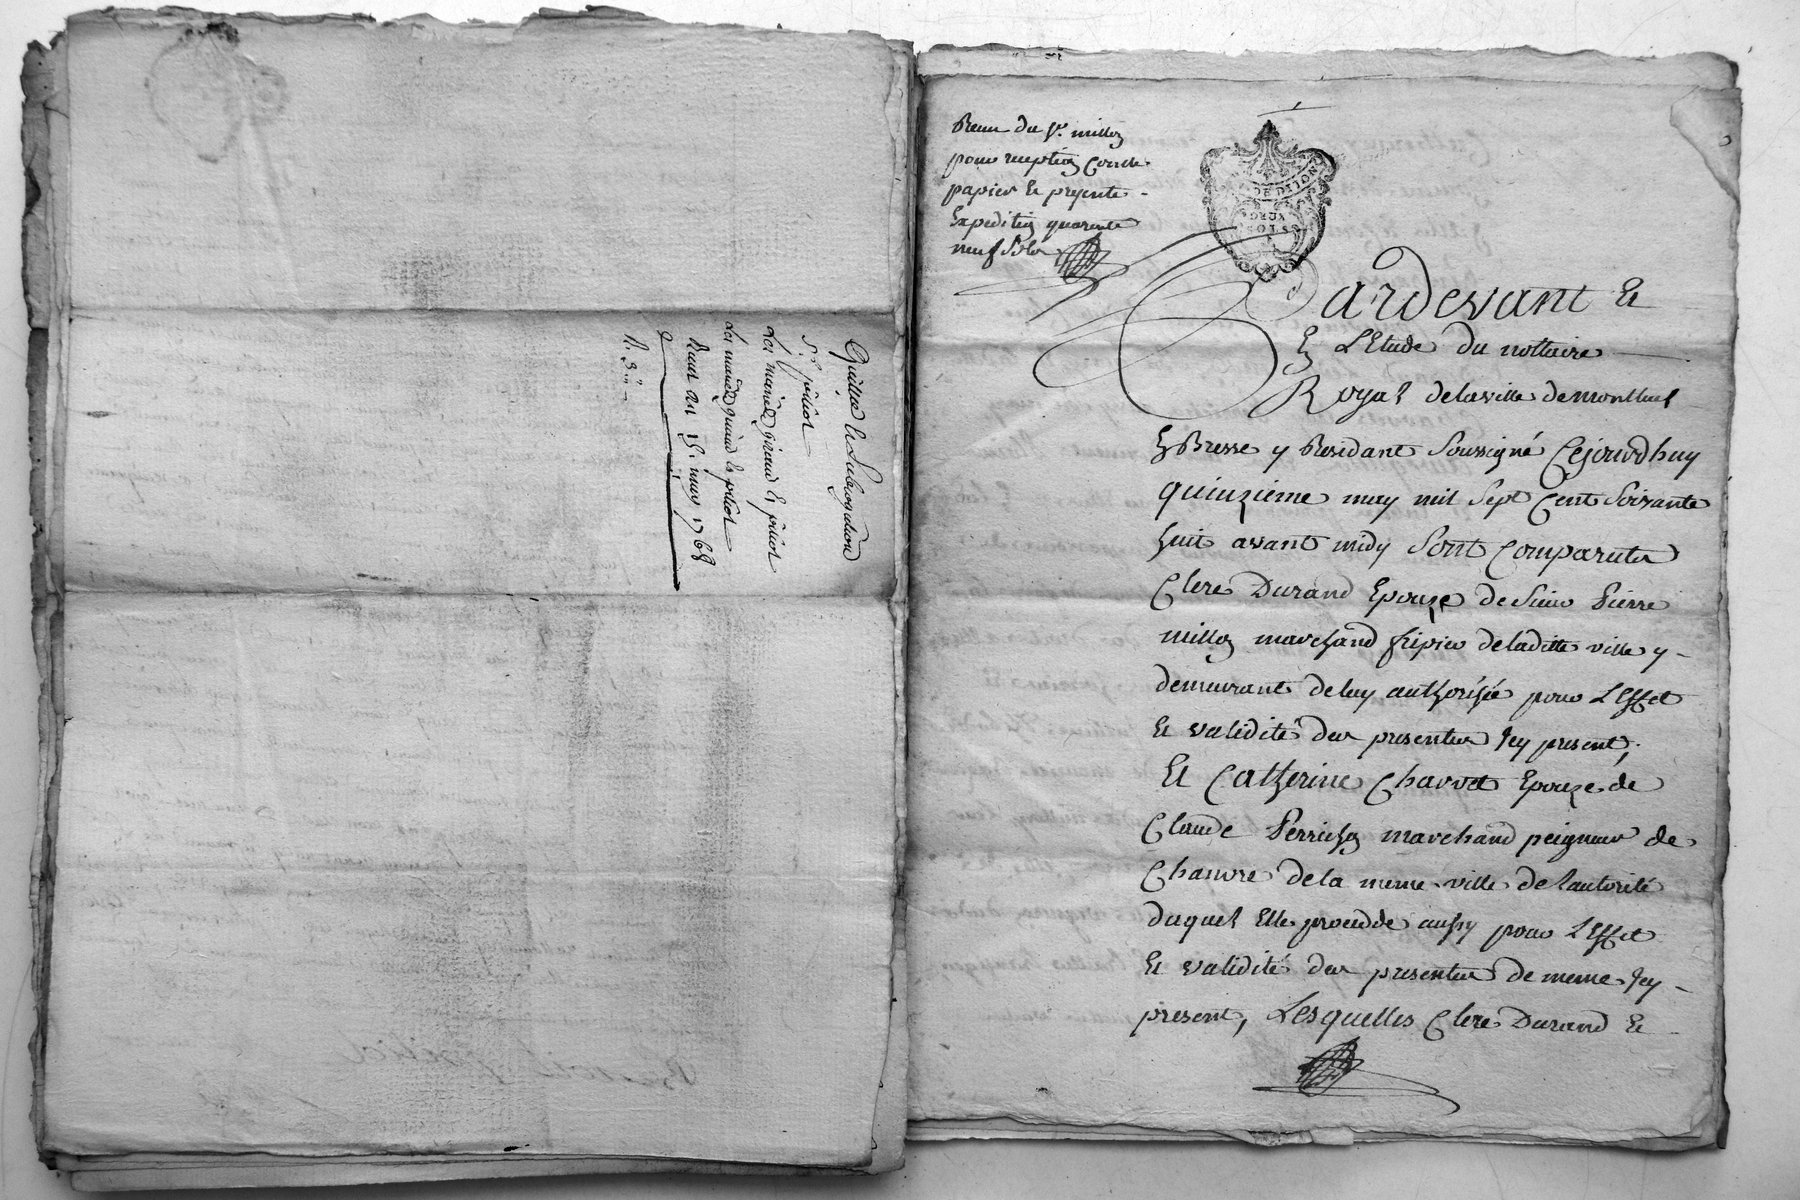 Quittance et Subrogation
Sr. pilliot
Les mariés giraud et pilliot
Les mariés giraud et pilliot
Du 15. may 1768
Receu du Sr. milloz
pour reception Conlle
papier et presente
Expedition quarente
neuf sols
DE DIJON
DEUX
SOLS
Pardevant et
En L'Etude du nottaire
Royal de la ville de montluel
En Bresse y Residant soussigné Cejourdhuy
quinzieme may mil sept Cent soixante
huit avant midy sont Comparuës
Clere Durand Epouze de Sieur Pierre
milloz marchand fripier de laditte ville y
demeurant de luy authorisée pour L'Effet
et validité des presentes Icy present,
Et Catherine Charvet Epouze de
Claude Perrichon marchand peigneur de
Chanvre de la meme ville de lautorité
duquel Elle proceddé aussy pour L'Effet
Et validité des presentes de meme Icy
present, Lesquelles Clere Durand Et